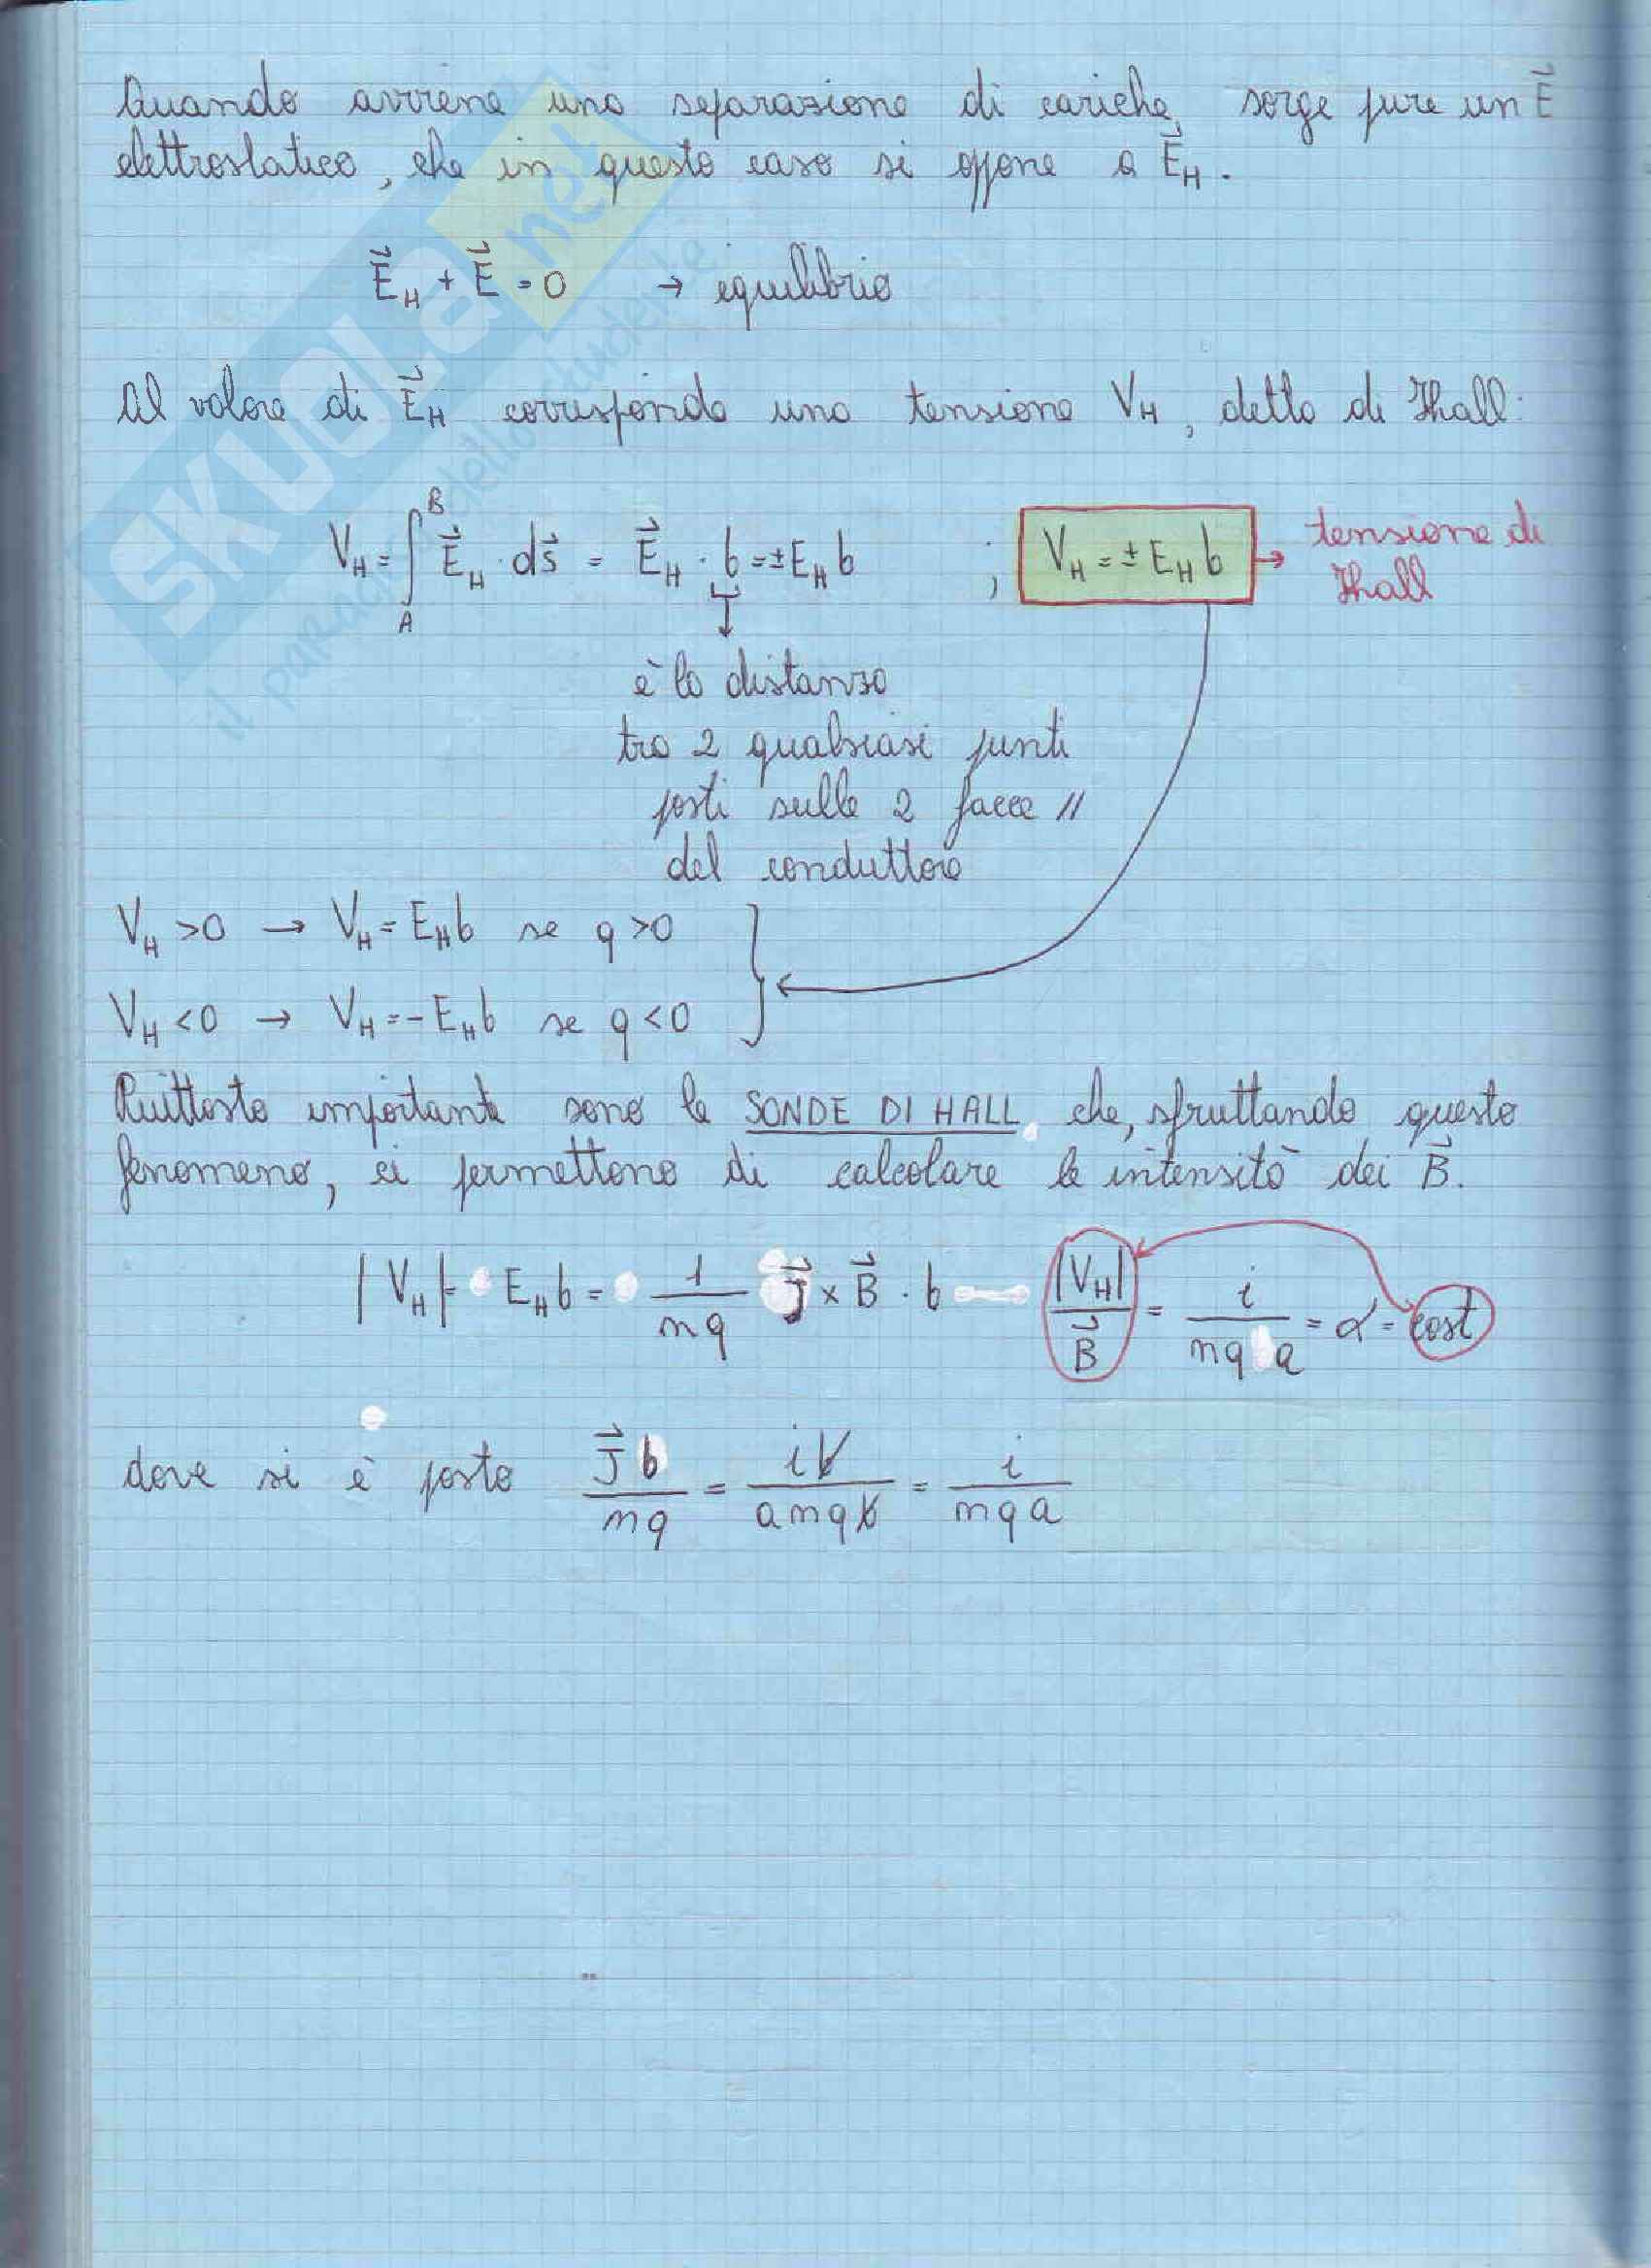 Quando avviene una separazione di cariche, sorge pure un E⃗
elettrostatico, che in questo caso si oppone a E⃗_H.
E⃗_H + E⃗ = 0 → equilibrio
Al valore di E⃗_H corrisponde una tensione V_H, detta di Hall:
V_H = ∫_A^B E⃗_H · ds⃗ = E⃗_H · b = ± E_H b ; V_H = ± E_H b → tensione di
Hall
è la distanza
tra 2 qualsiasi punti
posti sulle 2 facce //
del conduttore
V_H > 0 → V_H = E_H b se q > 0
V_H < 0 → V_H = - E_H b se q < 0
Piuttosto importante sono le SONDE DI HALL, che, sfruttando questo
fenomeno, ci permettono di calcolare le intensità dei B⃗.
|V_H| = E_H b = 1/nq J⃗ × B⃗ · b — |V_H|/B⃗ = i/nqa = α = cost
dove si è posto J⃗b/nq = ib/anqb = i/nqa
SKUOLA.net
il paradiso dello studente